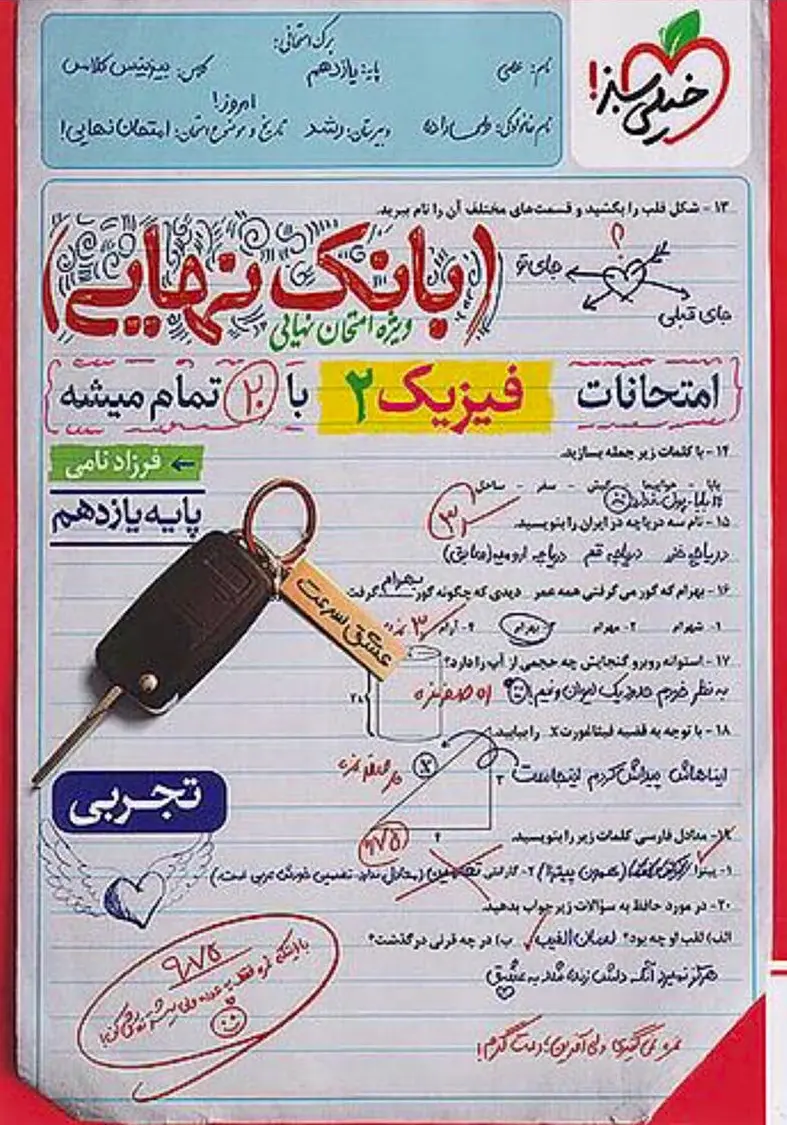 خیلی سبز!
برگ امتحانی:
نام: علی
پایه: یازدهم
کلاس: بیزینس کلاس
نام خانوادگی:
دبیرستان: رشد
تاریخ و موضوع امتحان: امروز! امتحان نهایی!
۱۳ - شکل قلب را بکشید و قسمت‌های مختلف آن را نام ببرید.
؟
جای تو
جای قبلی
(بانک نهایی)
ویژه امتحان نهایی
امتحانات فیزیک ۲ با ۲۰ تمام میشه
۱۴ - با کلمات زیر جمله بسازید.
بابا - هواپیما - کیش - سفر - ساحل
بابا پول ندارد
← فرزاد نامی
پایه یازدهم
۱۵ - نام سه دریاچه در ایران را بنویسید.
دریاچه خزر دریاچه قم دریاچه ارومیه (سابق)
۱۶ - بهرام که گور می‌گرفتی همه عمر دیدی که چگونه گور بهرام گرفت
۱- شهرام ۲- مهرام ۳- بهرام ۴- آرام
عشق سرعت
۱۷ - استوانه روبرو گنجایش چه حجمی از آب را دارد؟
به نظر خودم حدود یک لیوان و نیم!
۲۸
۱۸ - با توجه به قضیه فیثاغورث X را بیابید.
ایناهاش پیداش کردم اینجاست
X
۳
۴
تجربی
۹/۷۵
۱۹- معادل فارسی کلمات زیر را بنویسید.
۱- پیتزا (همون پیتزا!) ۲- گارانتی تضمین (معادل ندارد. تضمین خودش عربی است.)
۲۰- در مورد حافظ به سؤالات زیر جواب بدهید.
الف) لقب او چه بود؟ لسان الغیب ب) در چه قرنی درگذشت؟
هرگز نمیرد آنکه دلش زنده شد به عشق
۹/۷۵
نمره نمی‌گیری ولی آفرین، دمت گرم!